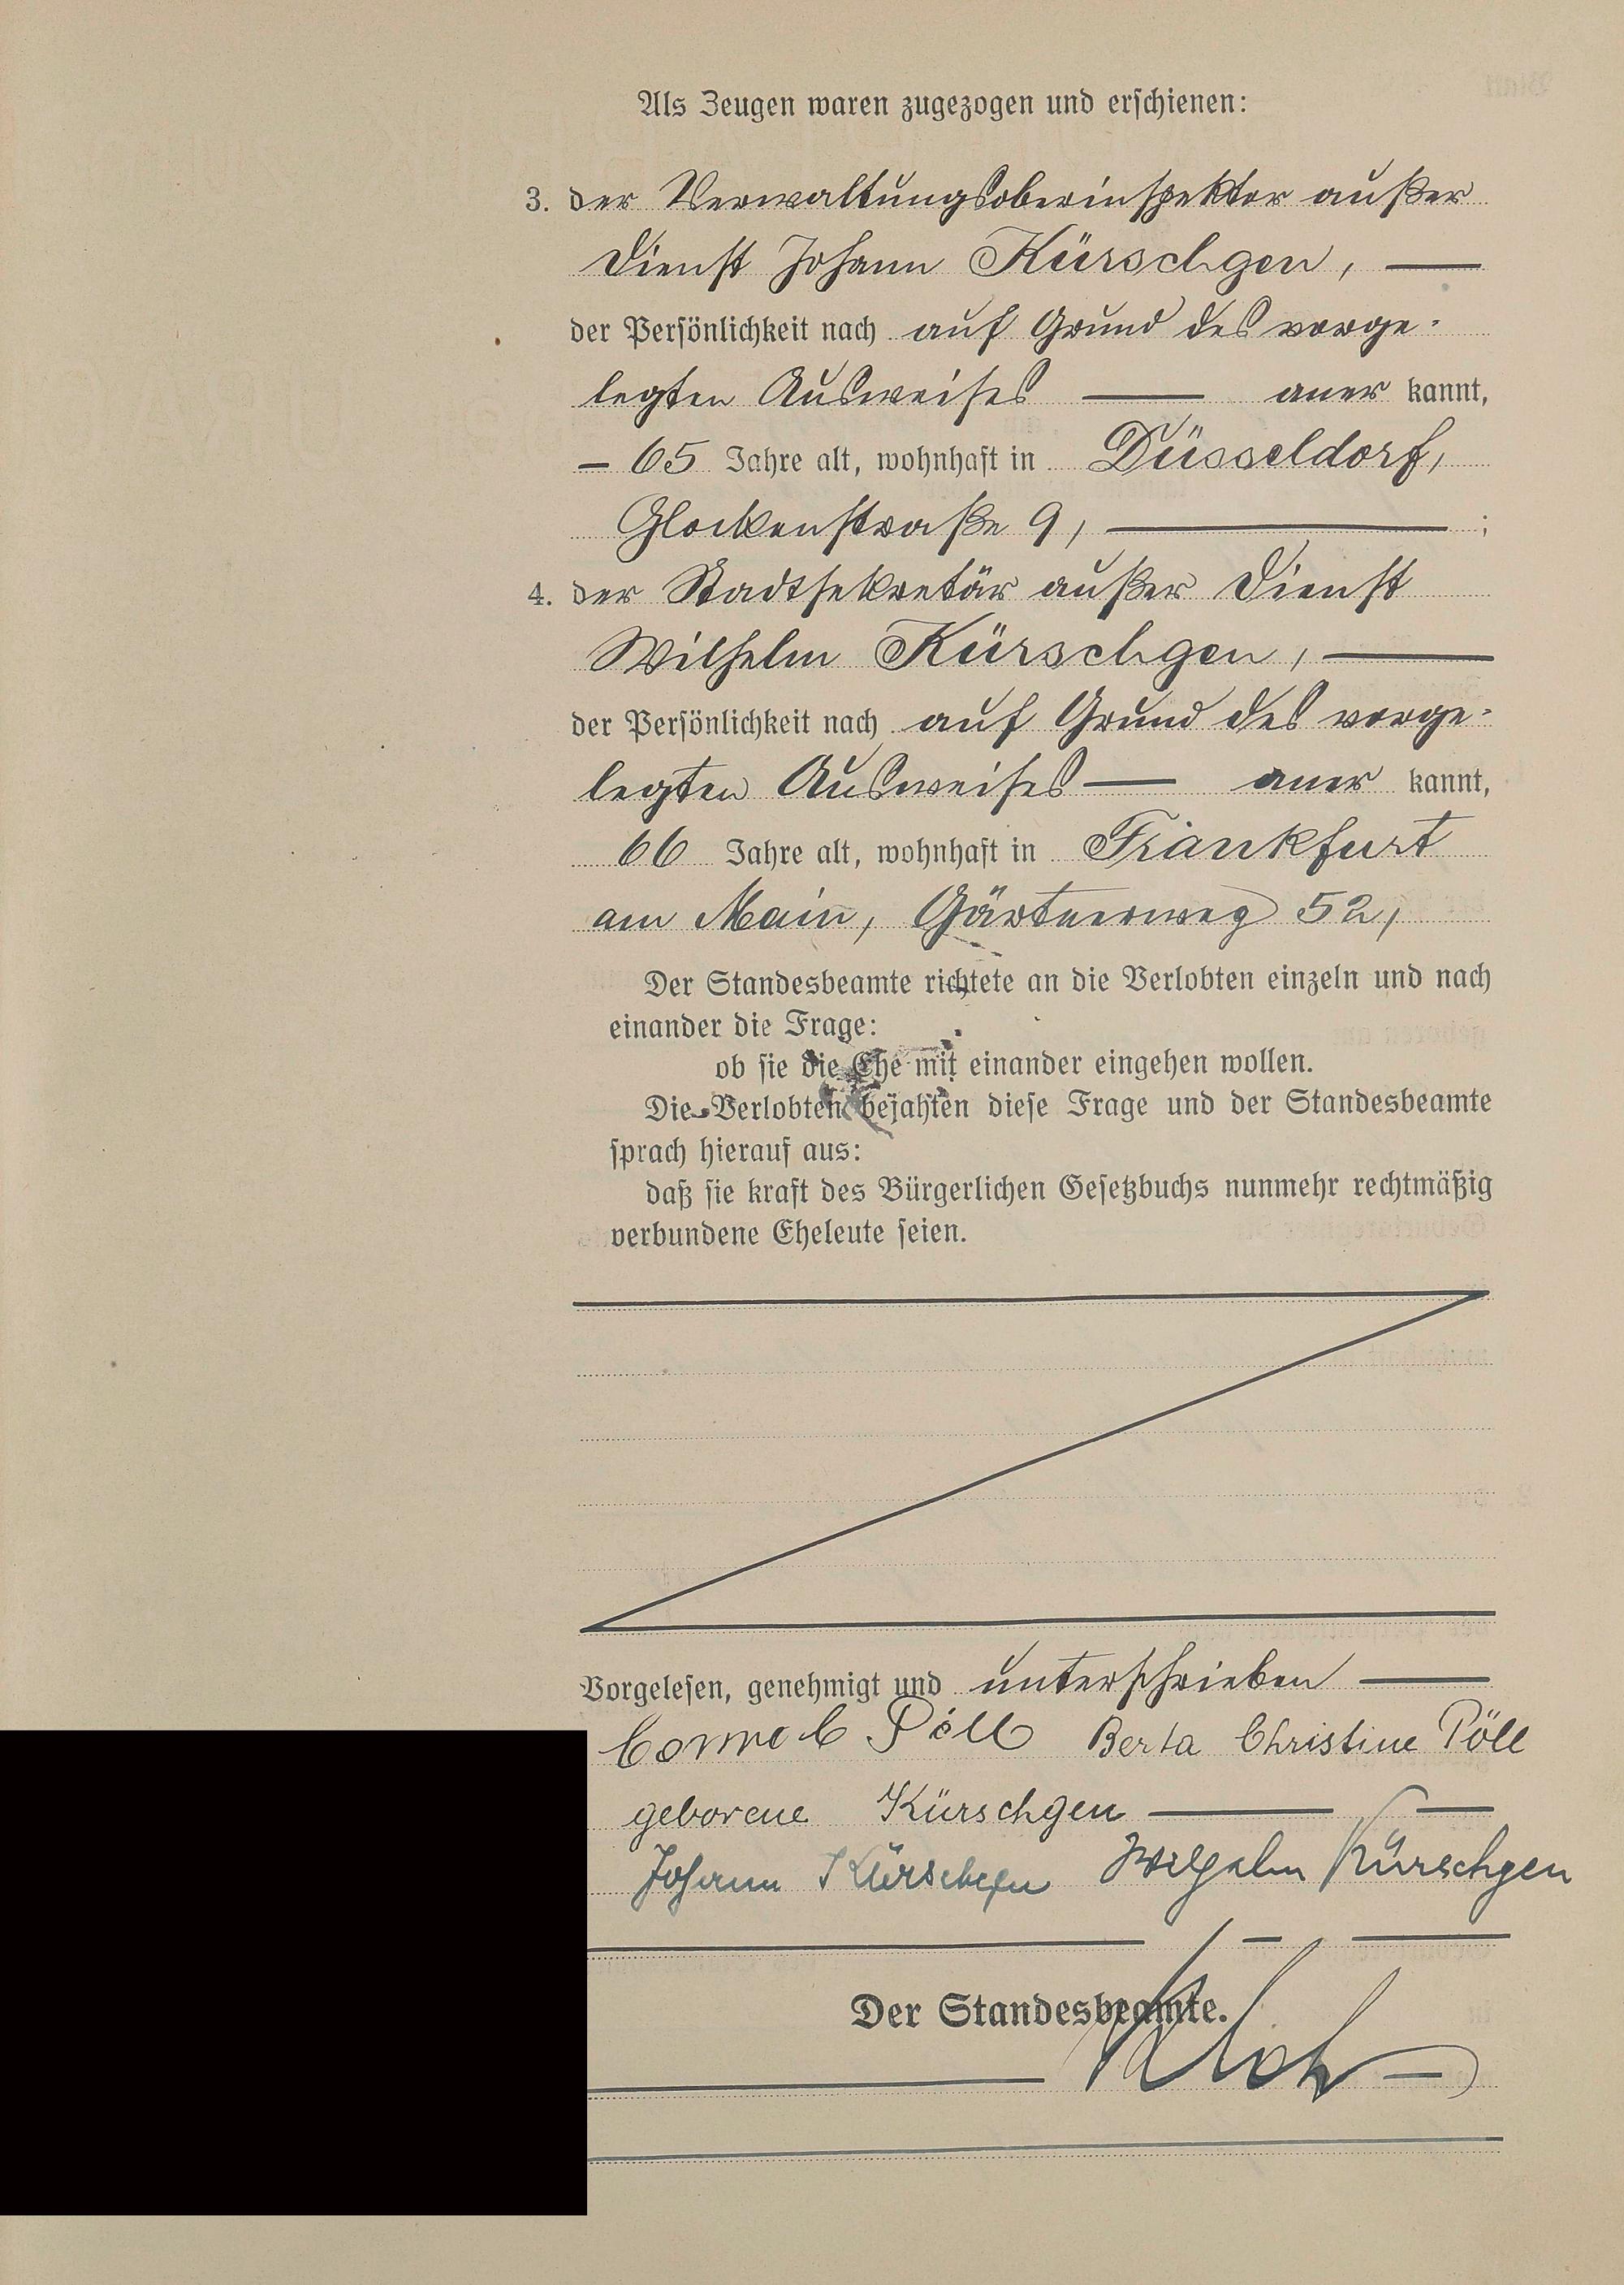 Als Zeugen waren zugezogen und erschienen:
3. der Verwaltungsoberinspektor außer
Dienst Johann Kürschgen, —
der Persönlichkeit nach auf Grund des vorge-
legten Ausweises — aner kannt,
— 65 Jahre alt, wohnhaft in Düsseldorf,
Glockenstraße 9, — ;
4. der Stadtsekretär außer Dienst
Wilhelm Kürschgen, —
der Persönlichkeit nach auf Grund des vorge-
legten Ausweises — aner kannt,
66 Jahre alt, wohnhaft in Frankfurt
am Main, Gärtnerweg 52,
Der Standesbeamte richtete an die Verlobten einzeln und nach
einander die Frage:
ob sie die Ehe mit einander eingehen wollen.
Die Verlobten bejahten diese Frage und der Standesbeamte
sprach hierauf aus:
daß sie kraft des Bürgerlichen Gesetzbuchs nunmehr rechtmäßig
verbundene Eheleute seien.
Vorgelesen, genehmigt und unterschrieben —
Pöll Berta Christine Pöll
geborene Kürschgen —
Johann Kürschgen Wilhelm Kürschgen
Der Standesbeamte.